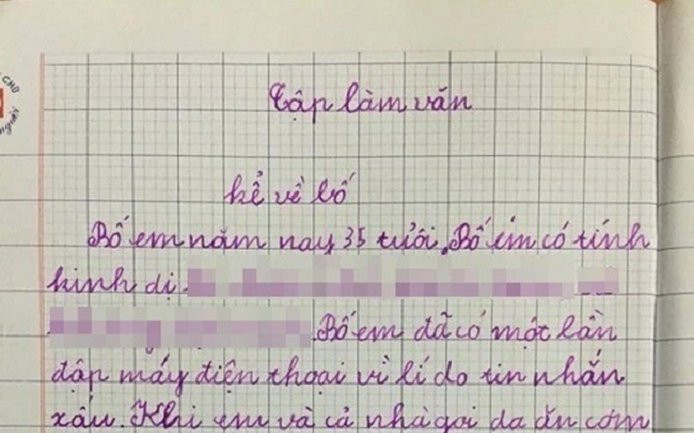 Tập làm văn
kể về bố
Bố em năm nay 35 tuổi. Bố em có tính
kinh dị.
Bố em đã có một lần
đập máy điện thoại vì lí do tin nhắn
xấu. Khi em và cả nhà gọi dạ ăn cơm